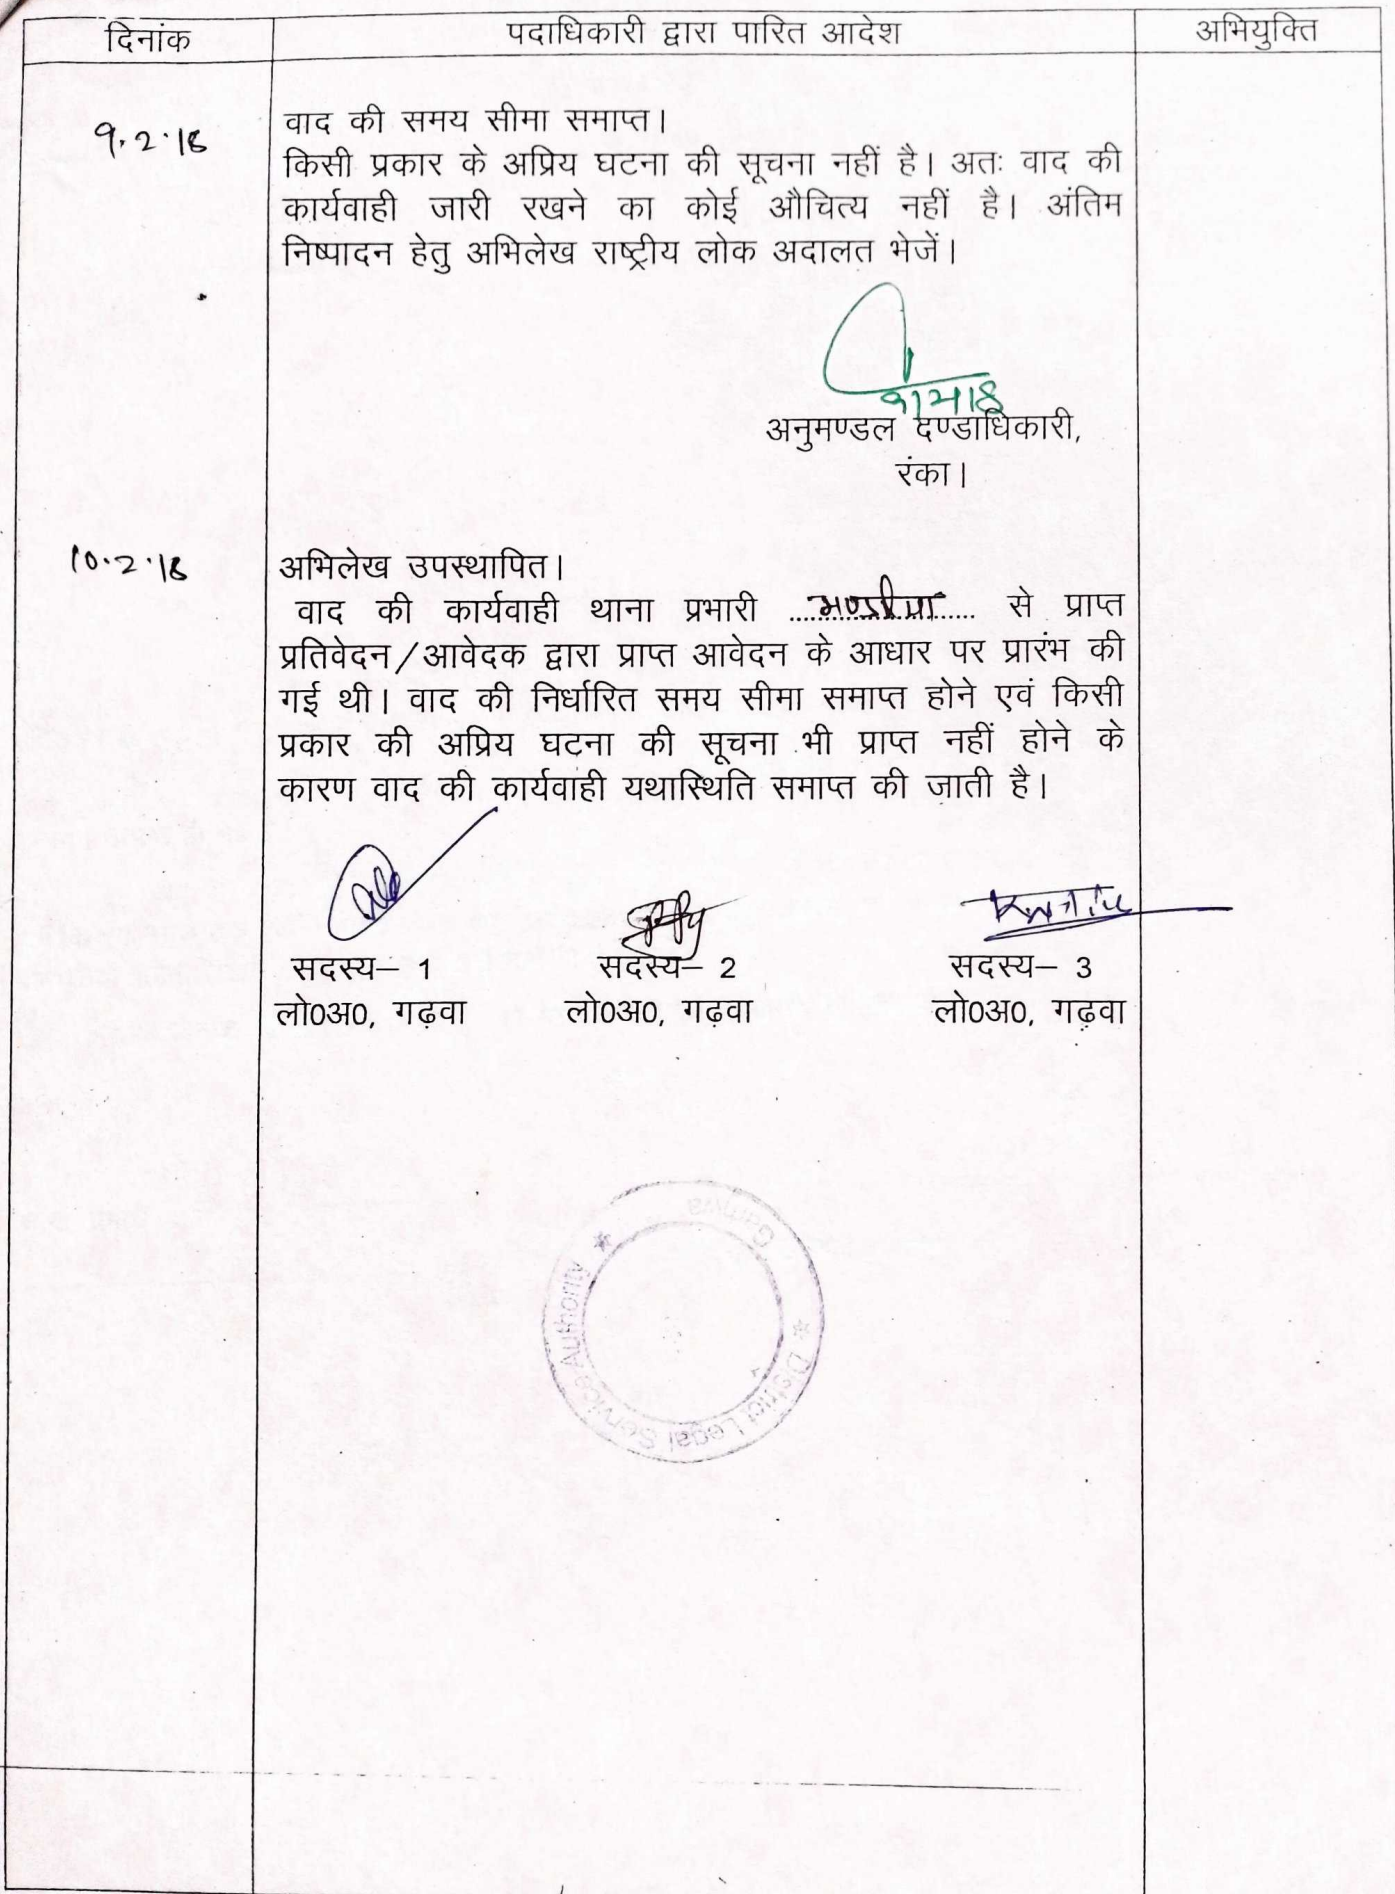 दिनांक पदाधिकारी द्वारा पारित आदेश अभियुक्ति
9.2.18
वाद की समय सीमा समाप्त।
किसी प्रकार के अप्रिय घटना की सूचना नहीं है। अतः वाद की
कार्यवाही जारी रखने का कोई औचित्य नहीं है। अंतिम
निष्पादन हेतु अभिलेख राष्ट्रीय लोक अदालत भेजें।
अनुमण्डल दण्डाधिकारी,
रंका।
10.2.18 अभिलेख उपस्थापित।
वाद की कार्यवाही थाना प्रभारी ........ से प्राप्त
प्रतिवेदन/आवेदक द्वारा प्राप्त आवेदन के आधार पर प्रारंभ की
गई थी। वाद की निर्धारित समय सीमा समाप्त होने एवं किसी
प्रकार की अप्रिय घटना की सूचना भी प्राप्त नहीं होने के
कारण वाद की कार्यवाही यथास्थिति समाप्त की जाती है।
सदस्य– 1 सदस्य– 2 सदस्य– 3
लो0अ0, गढ़वा लो0अ0, गढ़वा लो0अ0, गढ़वा
District Legal Service Authority
Garhwa